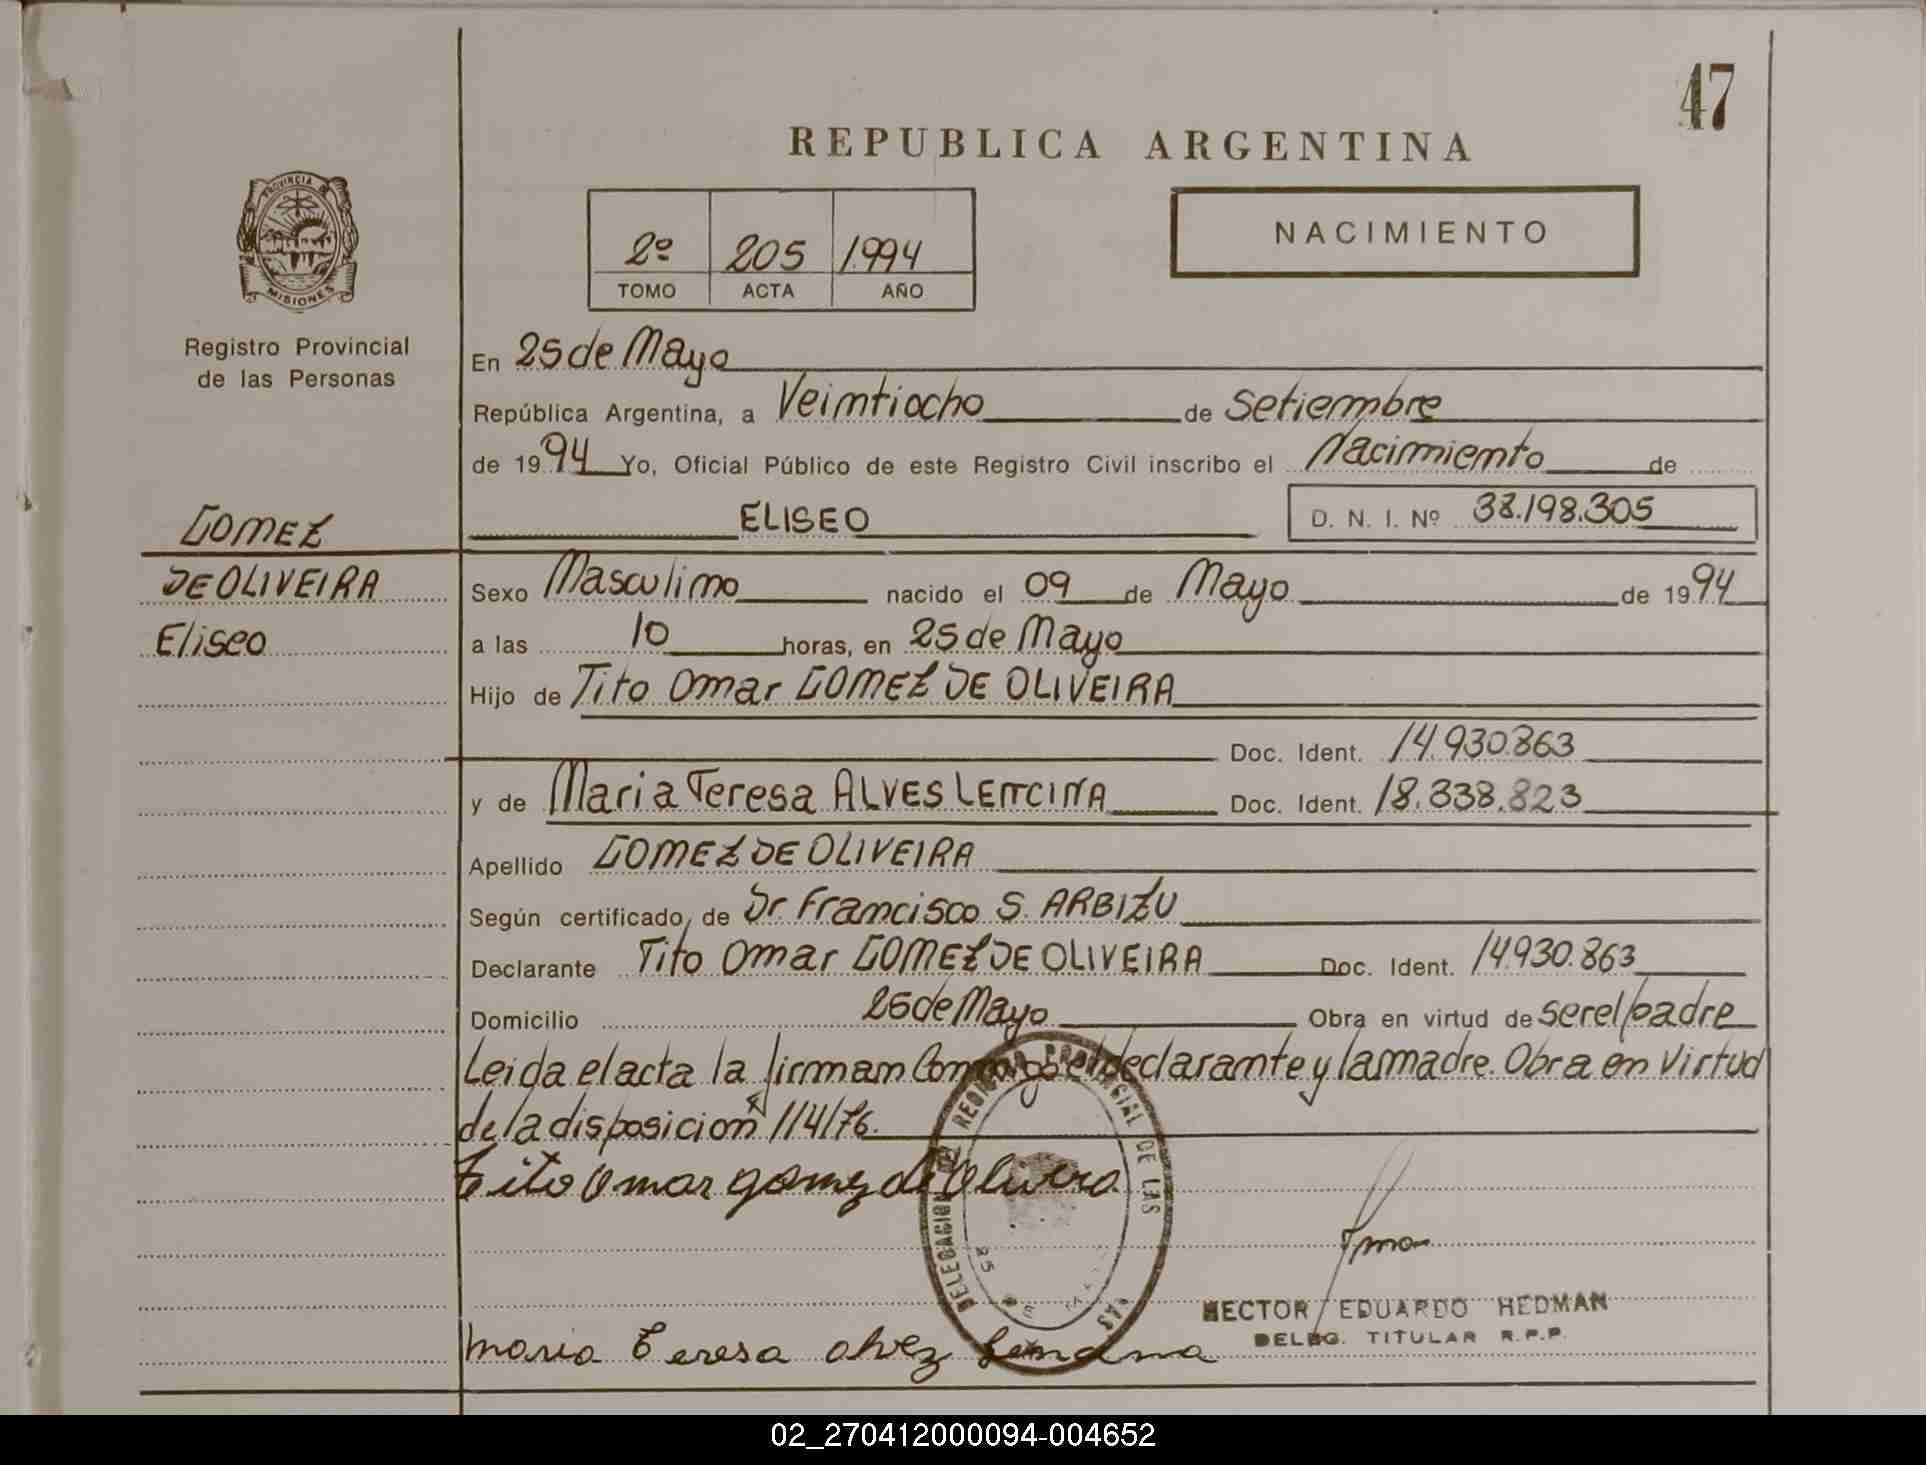 47
REPUBLICA ARGENTINA
PROVINCIA DE
MISIONES
Registro Provincial
de las Personas
2º 205 1.994
TOMO ACTA AÑO
NACIMIENTO
En 25 de Mayo
República Argentina, a Veintiocho de Setiembre
de 1994 Yo, Oficial Público de este Registro Civil inscribo el Nacimiento de
ELISEO D. N. I. Nº 38.198.305
GOMEZ
DE OLIVEIRA
Eliseo
Sexo Masculino nacido el 09 de Mayo de 1994
a las 10 horas, en 25 de Mayo
Hijo de Tito Omar GOMEZ DE OLIVEIRA
Doc. Ident. 14.930.863
y de Maria Teresa ALVES LENCINA Doc. Ident. 18.338.823
Apellido GOMEZ DE OLIVEIRA
Según certificado, de Dr. Francisco S. ARBIZU
Declarante Tito Omar GOMEZ DE OLIVEIRA Doc. Ident. 14.930.863
Domicilio 25 de Mayo Obra en virtud de ser el padre
Leida el acta la firman Conmigo el declarante y la madre. Obra en Virtud
de la disposicion 114/76.
Tito Omar gomez de Olivera
DELEGACION REGISTRO PROVINCIAL DE LAS
25 DE
HECTOR EDUARDO HEDMAN
DELEG. TITULAR R.P.P.
maria Teresa alvez
02_270412000094-004652